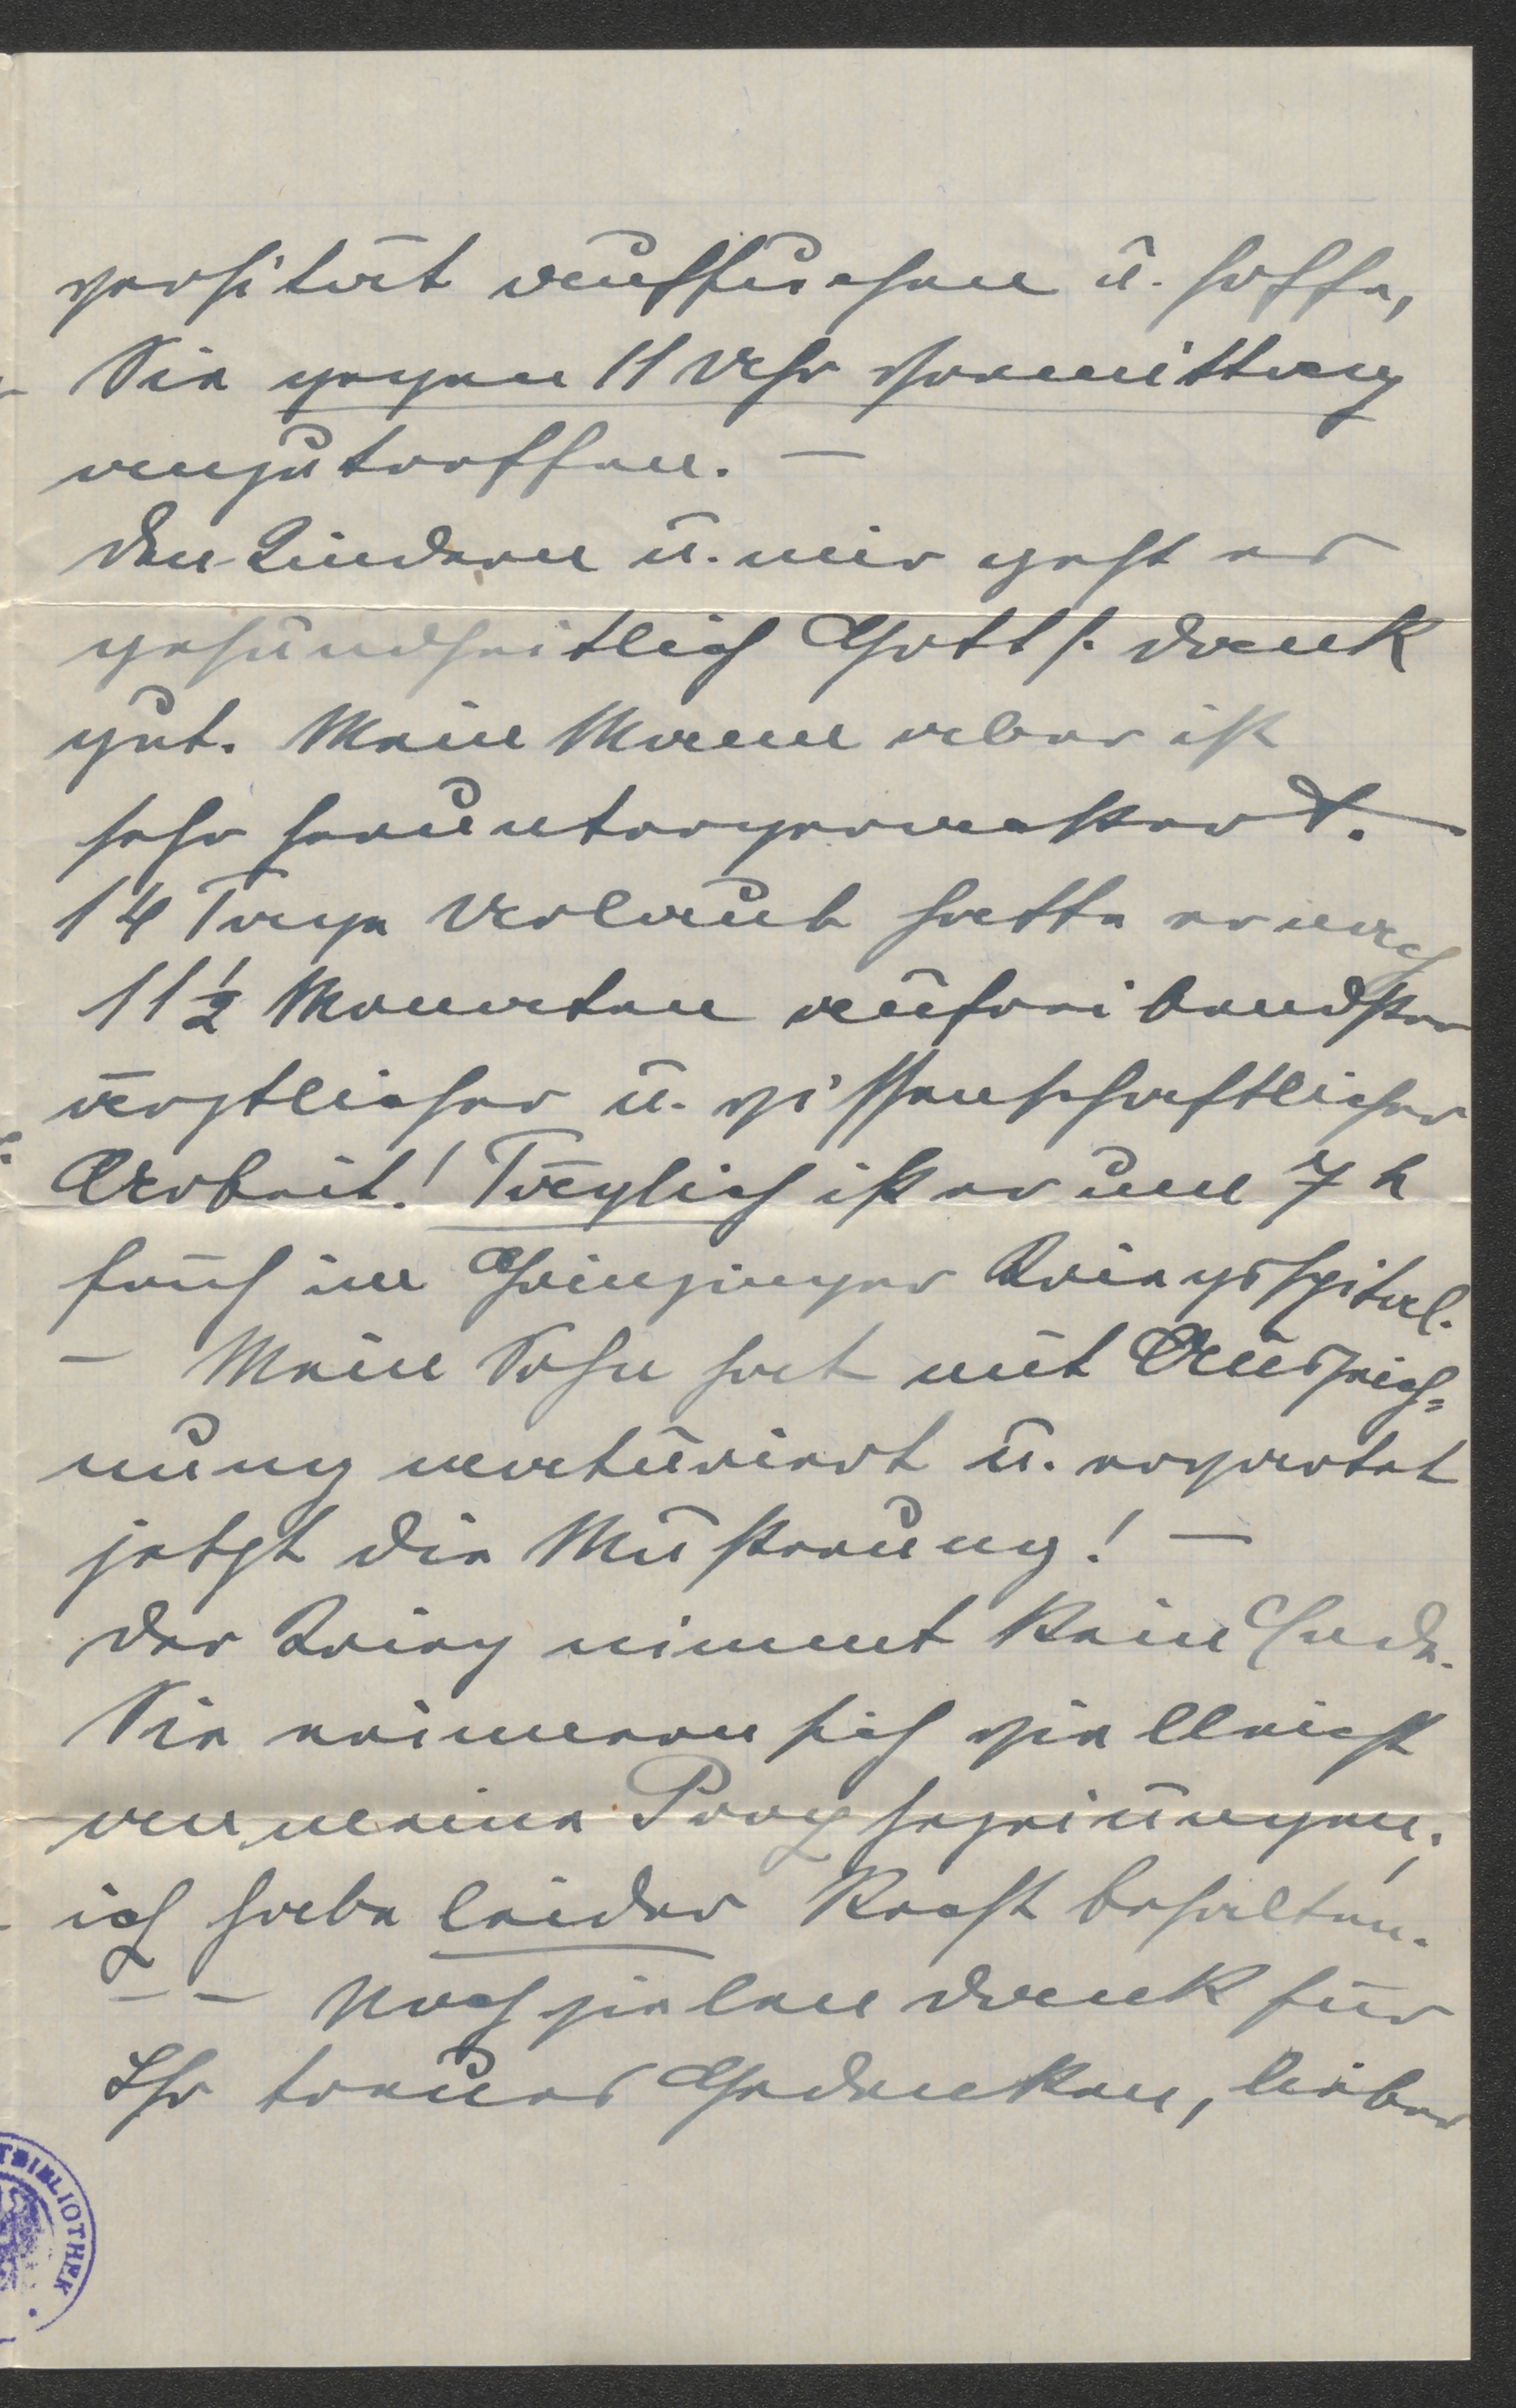 versität aufsuchen u. hoffe,
Sie gegen 11 Uhr Vormittag
anzutreffen. —
Den Kindern u. mir geht es
gesundheitlich Gott s. Dank
gut. Mein Mann aber ist
sehr heruntergerackert. —
14 Tage Urlaub hatte er nach
11½ Monaten aufreibendster
ärztlicher u. wissenschaftlicher
Arbeit! Täglich ist er um 7 h
früh im Grinzinger Kriegsspital.
— Mein Sohn hat mit Auszeich=
nung maturiert u. erwartet
jetzt die Musterung! —
Der Krieg nimmt kein Ende.
Sie erinnern sich vielleicht
an meine Profezeiungen;
ich habe leider Recht behalten.
– – Noch vielen Dank für
Ihr treues Gedenken, lieber
TBIBLIOTHEK